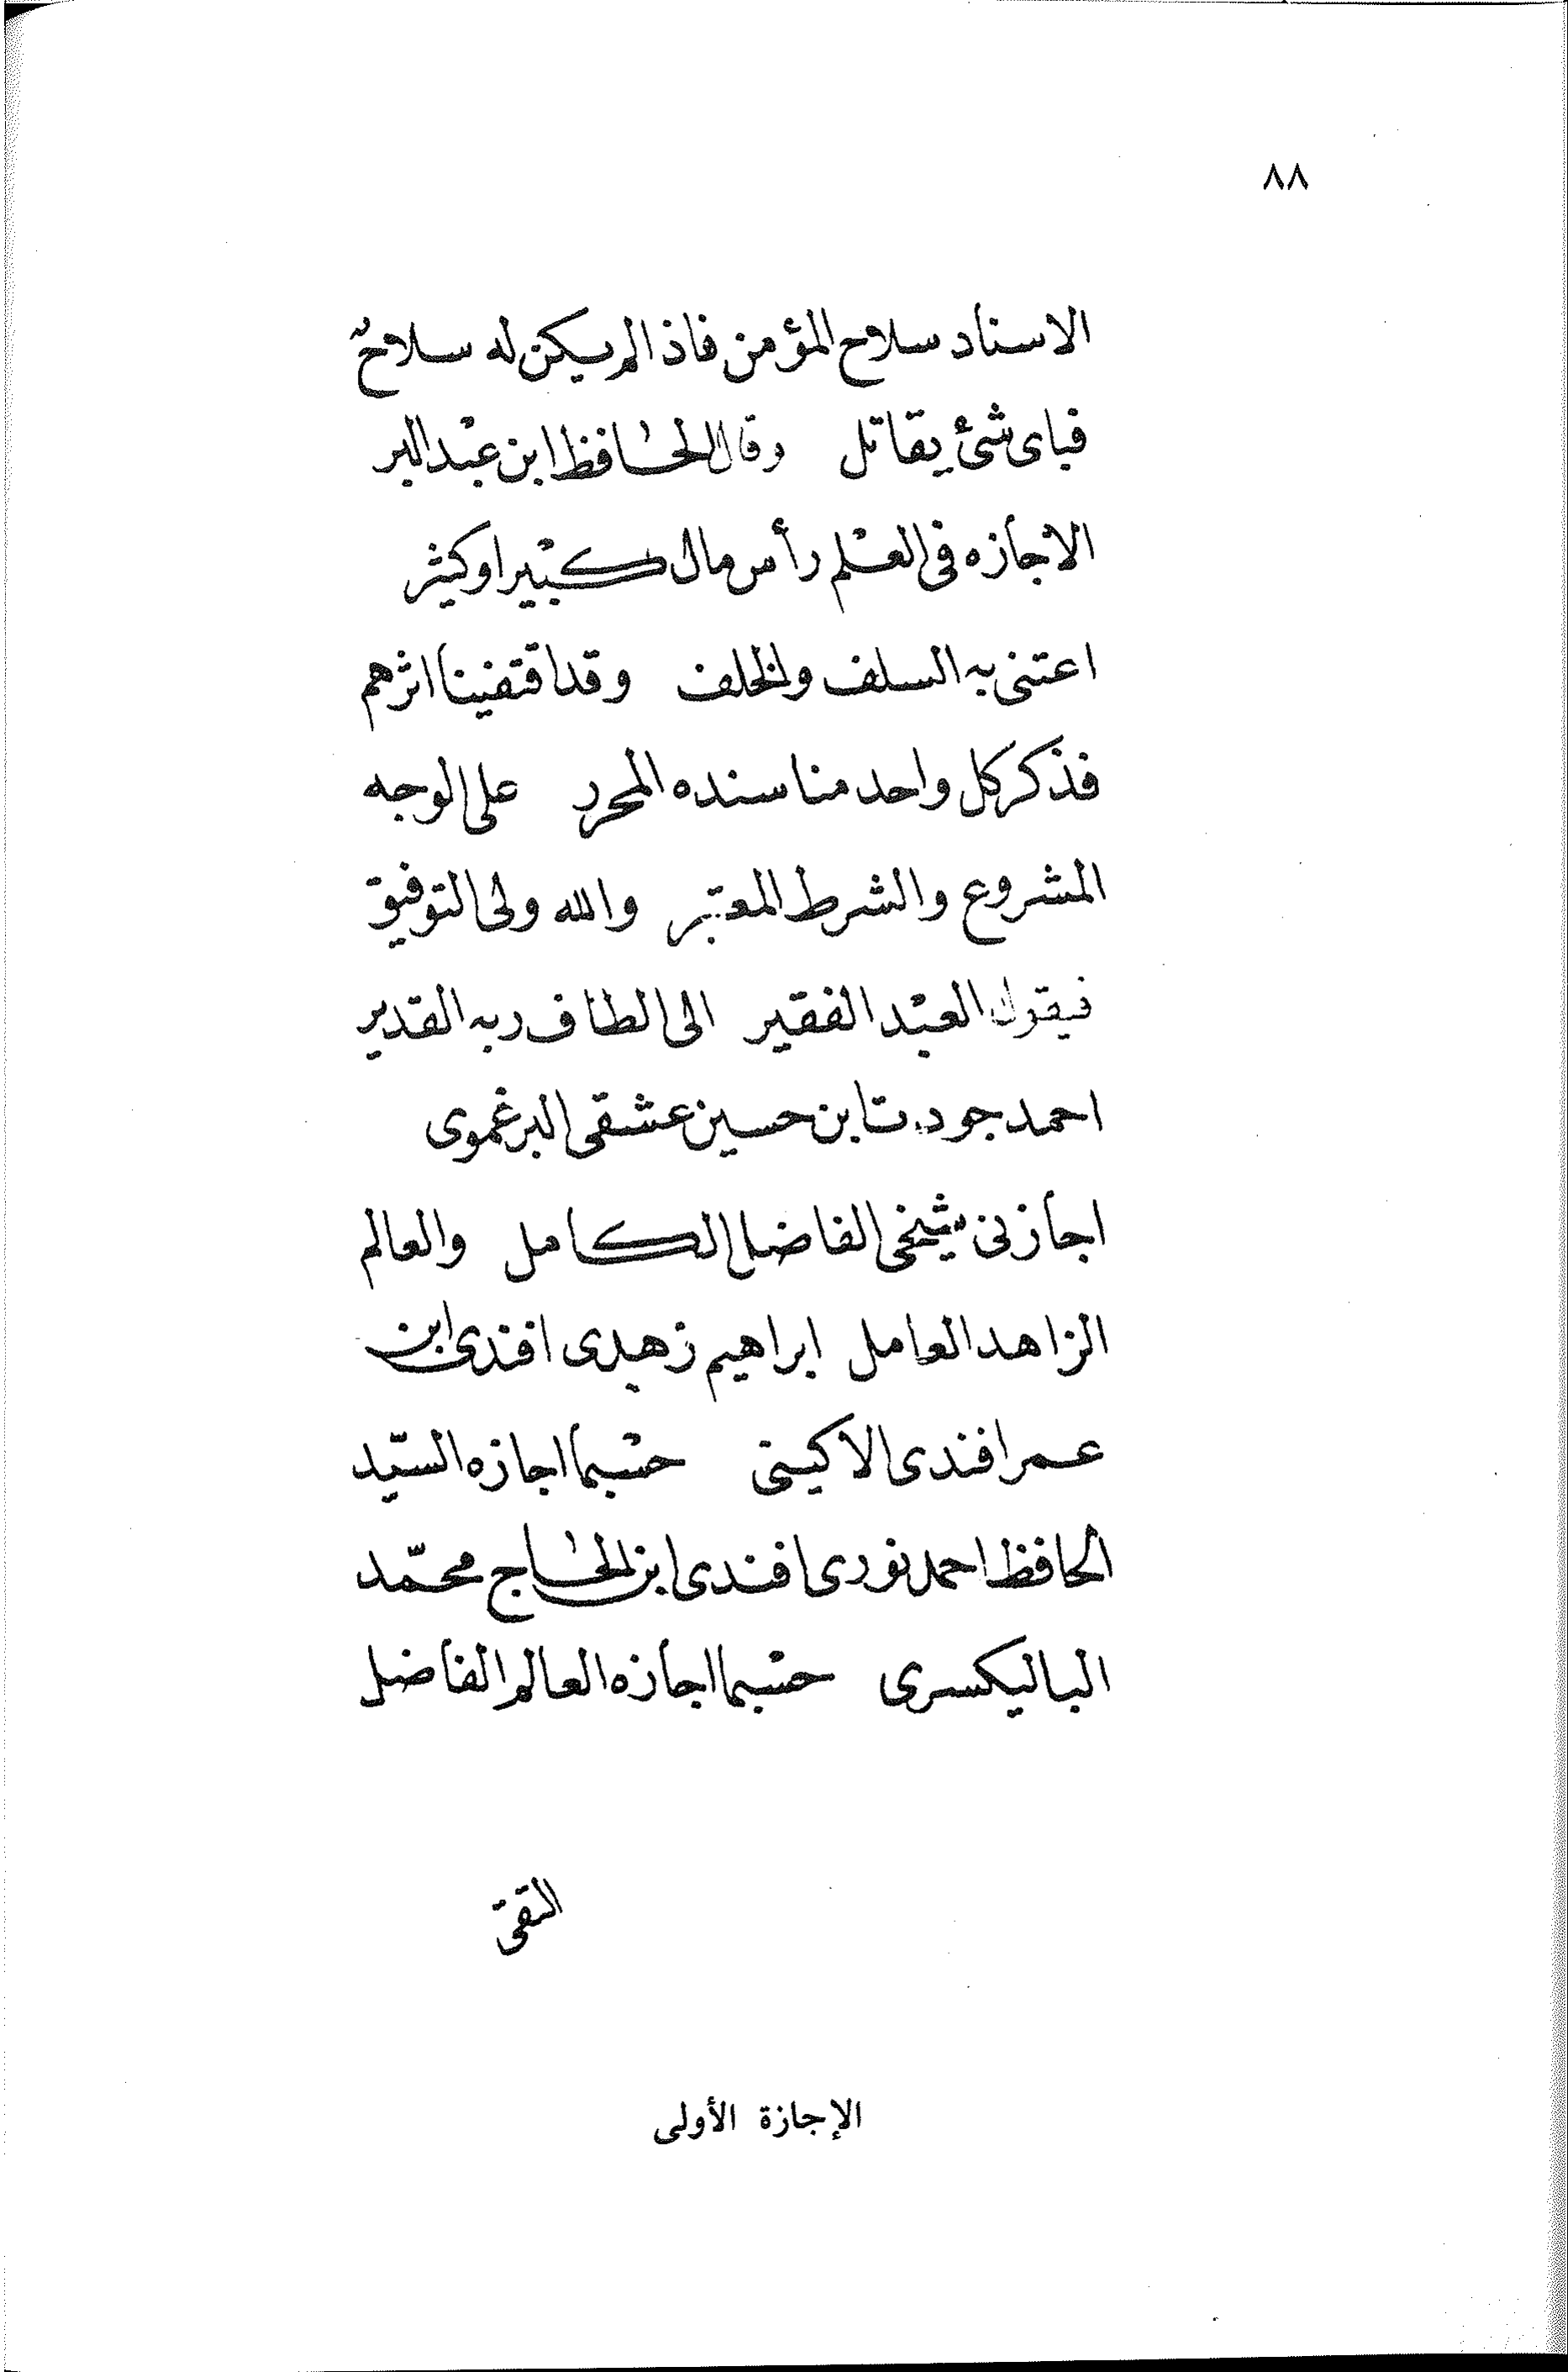 ٨٨
الاسناد سلاح المؤمن فاذا لم يكن له سلاحٌ
فباى شئ يقاتل وقال الحافظ ابن عبد البر
الاجازه فى العلم رأس مال كبير او كثير
اعتنى به السلف والخلف وقد اقتفينا اثرهم
فذكر كل واحد منا سنده المحرر على الوجه
المشروع والشرط المعتبر والله ولى التوفيق
فيقول العبد الفقير الى الطاف ربه القدير
احمد جودت ابن حسين عشقى البرغموى
اجازنى شيخى الفاضل الكامل والعالم
الزاهد العامل ابراهيم زهدى افندى ابن
عمر افندى الاكينى حسبما اجازه السيّد
الحافظ احمد نورى افندى ابن الحاج محمّد
الباليكسرى حسبما اجازه العالم الفاضل
التقى
الإجازة الأولى